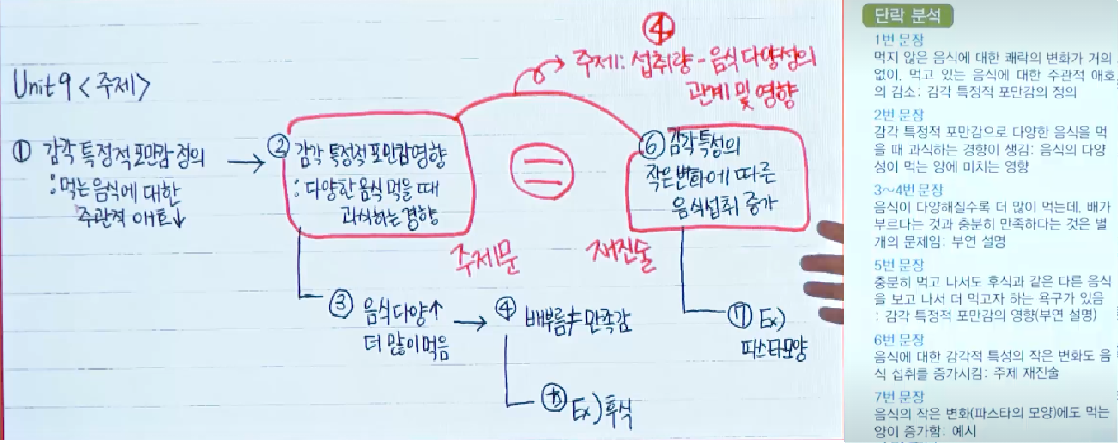 Unit 9 <주제>
① 감각 특정적 포만감 정의
: 먹는 음식에 대한
주관적 애호↓
② 감각 특정적 포만감 영향
: 다양한 음식 먹을 때
과식하는 경향
주제문
③ 음식다양↑
더 많이 먹음
④ 배부름≠만족감
⑤ Ex) 후식
④
주제: 섭취량 - 음식 다양성의
관계 및 영향
⑥ 감각특성의
작은변화에 따른
음식섭취 증가
재진술
⑦ Ex)
파스타모양
단락 분석
1번 문장
먹지 않은 음식에 대한 쾌락의 변화가 거의
없이, 먹고 있는 음식에 대한 주관적 애호
의 감소: 감각 특정적 포만감의 정의
2번 문장
감각 특정적 포만감으로 다양한 음식을 먹
을 때 과식하는 경향이 생김: 음식의 다양
성이 먹는 양에 미치는 영향
3~4번 문장
음식이 다양해질수록 더 많이 먹는데, 배가
부르다는 것과 충분히 만족하다는 것은 별
개의 문제임: 부연 설명
5번 문장
충분히 먹고 나서도 후식과 같은 다른 음식
을 보고 나서 더 먹고자 하는 욕구가 있음
: 감각 특정적 포만감의 영향(부연 설명)
6번 문장
음식에 대한 감각적 특성의 작은 변화도 음
식 섭취를 증가시킴: 주제 재진술
7번 문장
음식의 작은 변화(파스타의 모양)에도 먹는
양이 증가함: 예시